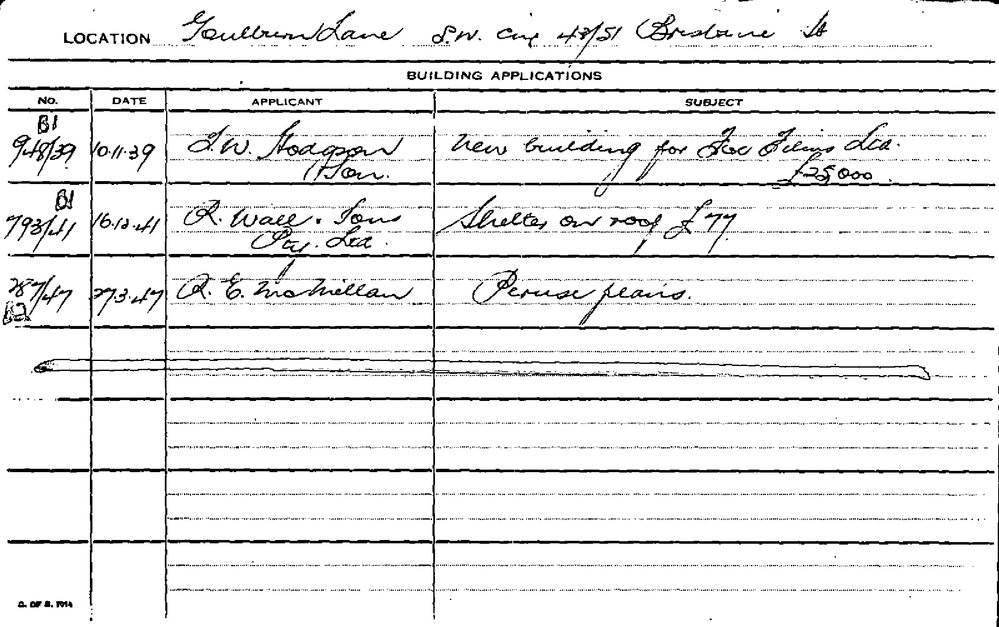 LOCATION Goulburn Lane S.W. Cnr 43/51 Brisbane St
BUILDING APPLICATIONS
No. DATE APPLICANT SUBJECT
B1
948/39 10.11.39 T.W. Hodgson New building for Fox Films Ltd.
& Son. £25,000
B1
793/41 16.12.41 R. Wall & Sons Shelter on roof £77
Pty. Ltd.
287/47 27.3.47 R. E. McMillan Peruse plans.
B2